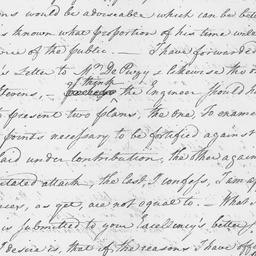 ns would be adviseable which can be bett
is known what proportion of his time will
ence of the public. — I have forwarded
's Letter to Mr. De Pusy & likewise tho
thinks
Stevens, — the Engineer should h
to present two plans, the one, To enume
points necessary to be fortified against
laid under contribution, the other again
ditated attack, the last, I confess, I am of
ces, as yet, are not equal to. — What
is submitted to your Excellency's better
I desire is, that if, the reasons I have off